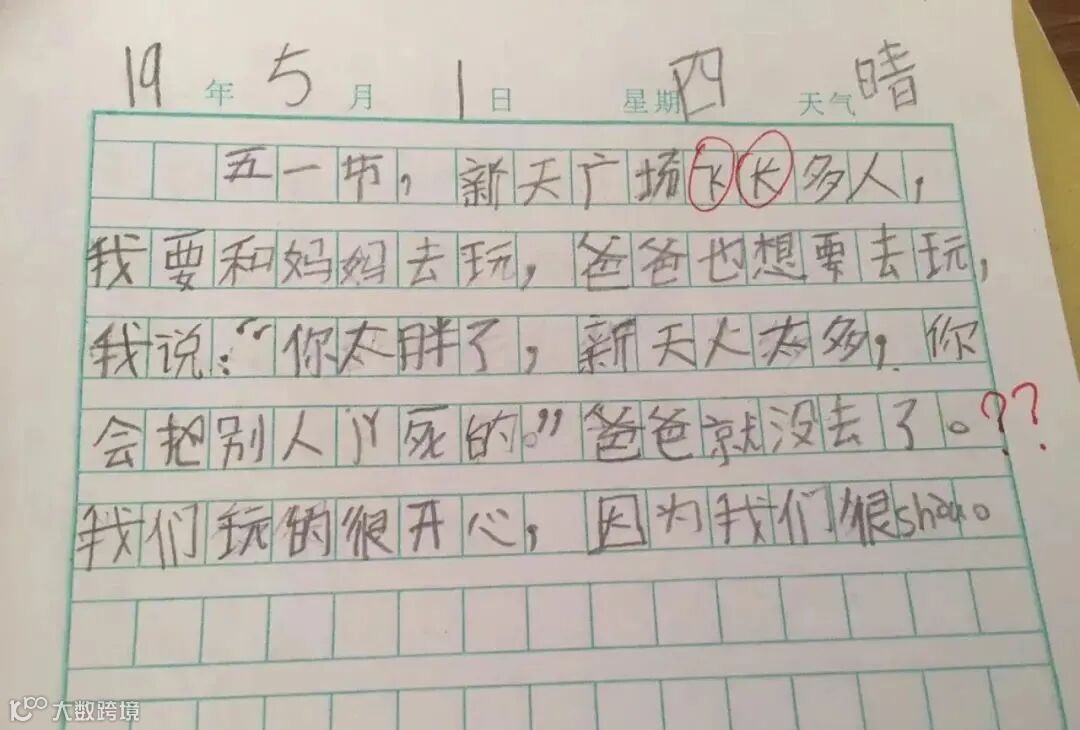 19年5月1日 星期四 天气晴
五一节，新天广场飞长多人，
我要和妈妈去玩，爸爸也想要去玩，
我说：“你太胖了，新天人太多，你
会把别人jǐ死的。”爸爸就没去了。??
我们玩的很开心，因为我们很shòu。
大数跨境